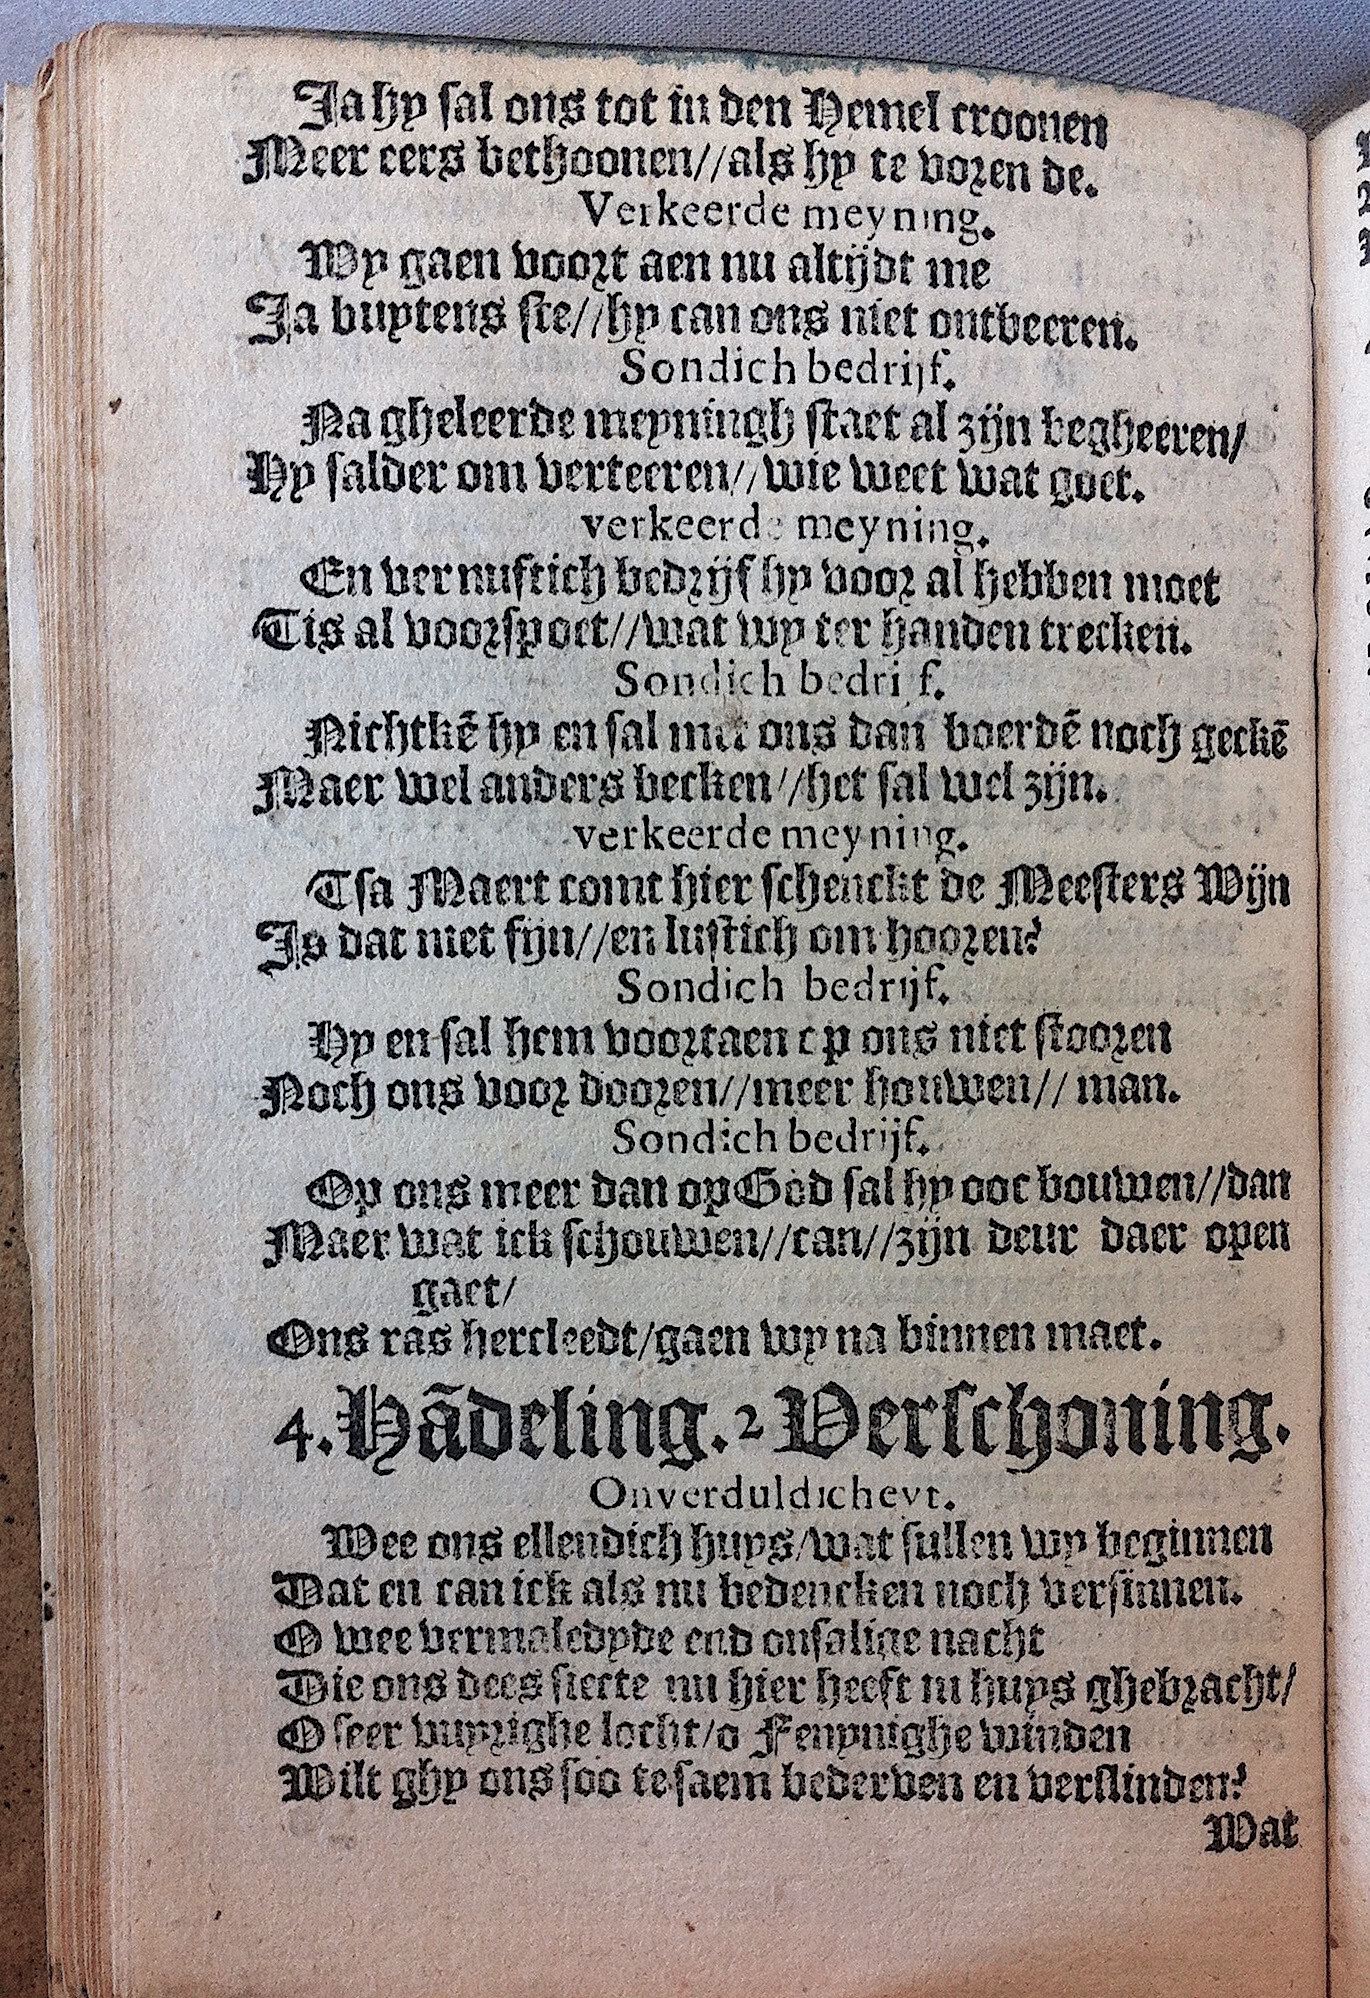 Ja hy sal ons tot in den Hemel croonen
Meer eers bethoonen//als hy te voren de.
Verkeerde meyning.
Wy gaen voort aen nu altijdt me
Ja buytens ste//hy can ons niet ontbeeren.
Sondich bedrijf.
Na gheleerde meyningh staet al zijn begheeren/
Hy salder om verteeren//wie weet wat goet.
verkeerde meyning.
En vernuftich bedrijf hy voor al hebben moet
Tis al voorspoet//wat wy ter handen trecken.
Sondich bedrijf.
Nichtkē hy en sal met ons dan boerdē noch geckē
Maer wel anders becken//het sal wel zijn.
verkeerde meyning.
Tsa Maert comt hier schenckt de Meesters Wijn
Is dat niet fijn//en lustich om hooren?
Sondich bedrijf.
Hy en sal hem voortaen op ons niet stooren
Noch ons voor dooren//meer houwen// man.
Sondich bedrijf.
Op ons meer dan op God sal hy ooc bouwen//dan
Maer wat ick schouwen//can//zijn deur daer open
gaet/
Ons ras hercleedt/gaen wy na binnen maet.
4. Hādeling. 2 Verschoning.
Onverduldicheyt.
Wee ons ellendich huys/wat sullen wy beginnen
Dat en can ick als nu bedencken noch versinnen.
O wee vermaledyde end onsalige nacht
Die ons dees siecte nu hier heeft in huys ghebracht/
O seer vuyrighe locht/o Fenynighe winden
Wilt ghy ons soo te saem bederven en verslinden?
Wat